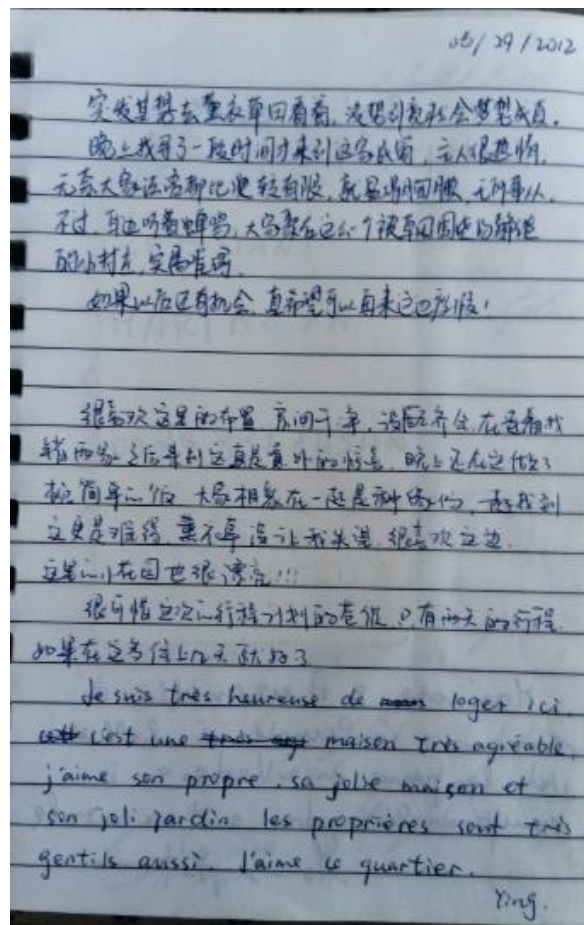 05/29/2012
突发其想去薰衣草田看看,没想到竟然会梦想成真。
晚上我寻了一段时间才来到这家民宿,主人很热情,
无奈大家语言都比较有限,
不过,耳边听着蝉鸣,大家聚在这么个被草田围
的小村庄,实属难得
如果以后还有机会,真希望可以再来这边度假!
很喜欢这里的布置,房间干净,设备齐全,在
两家之后寻到这真是意外的惊喜,晚上还在这做了
顿简单的饭,大家相聚在一起是种缘份,能找到
这更是难得,薰衣草没让我失望,很喜欢这边,
这里的小花园也很漂亮!!!
很可惜这次的行程计划的仓促,只有两天的行程,
如果在这多住上几天就好了
Je suis très heureuse de loger ici.
c'est une maison très agréable,
j'aime son propre, sa jolie maison et
son joli jardin les proprières sont très
gentils aussi. J'aime ce quartier.
Ying.